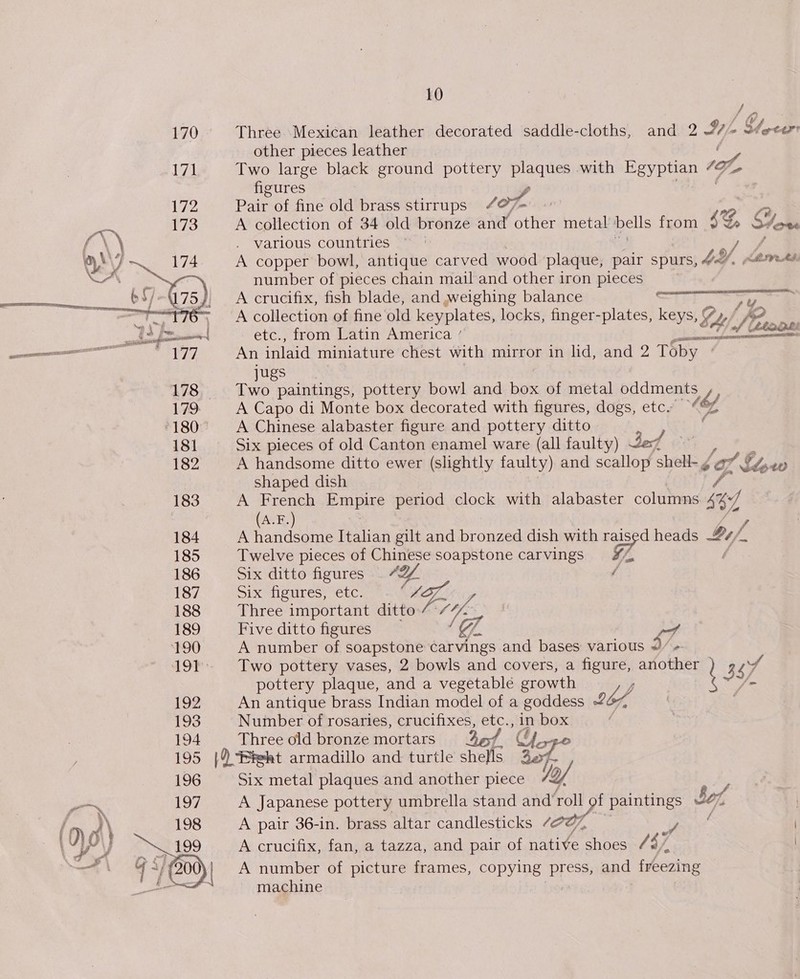 10
170 Three Mexican leather decorated saddle-cloths, and 2
other pieces leather
171 Two large black ground pottery plaques with Egyptian
figures
172 Pair of fine old brass stirrups
173 A collection of 34 old bronze and other metal bells from
various countries
174 A copper bowl, antique carved wood plaque, pair spurs,
number of pieces chain mail and other iron pieces
175 A crucifix, fish blade, and weighing balance
176 A collection of fine old keyplates, locks, finger-plates, keys,
etc., from Latin America
177 An inlaid miniature chest with mirror in lid, and 2 Toby
jugs
178 Two paintings, pottery bowl and box of metal oddments
179 A Capo di Monte box decorated with figures, dogs, etc.
180 A Chinese alabaster figure and pottery ditto
181 Six pieces of old Canton enamel ware (all faulty)
182 A handsome ditto ewer (slightly faulty) and scallop shell-
shaped dish
183 A French Empire period clock with alabaster columns
(A.F.)
184 A handsome Italian gilt and bronzed dish with raised heads
185 Twelve pieces of Chinese soapstone carvings
186 Six ditto figures
187 Six figures, etc.
188 Three important ditto
189 Five ditto figures
190 A number of soapstone carvings and bases various
191 Two pottery vases, 2 bowls and covers, a figure, another
pottery plaque, and a vegetable growth
192 An antique brass Indian model of a goddess
193 Number of rosaries, crucifixes, etc., in box
194 Three old bronze mortars
195 Eight armadillo and turtle shells
196 Six metal plaques and another piece
197 A Japanese pottery umbrella stand and roll of paintings
198 A pair 36-in. brass altar candlesticks
199 A crucifix, fan, a tazza, and pair of native shoes
200 A number of picture frames, copying press, and freezing
machine